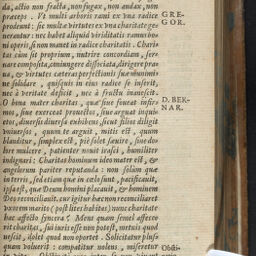 da, actio non fracta, non fugax, non audax, non
præceps. Vt multi arboris rami ex vna radice
prodeunt: sic multæ virtutes ex vna charitate ge-
nerantur: nec habet aliquid viriditatis ramus bo-
ni operis, si non manet in radice charitatis. Chari-
tas cum sit proprium, nutrire concordiam, ser-
nare composita, coniungere dissociata, dirigere praua,
& virtutes cæteras perfectionis suæ munimi-
ne solidare, quisquis in eius radice se inserit,
nec à veritate deficit, nec à fructu inanescit.
O bona mater charitas, quæ siue foueat infir-
mos, siue exerceat prouectos, siue arguat inquie-
tos, diuersis diuersa exhibens, sicut filios diligit
vniuersos, quum te arguit, mitis est, quum
blanditur, simplex est, pie solet sæuire, sine do-
lore mulcere, patienter nouit irasci, humiliter
indignari: Charitas hominum ideo mater est, &
angelorum pariter reputanda: non solùm quæ
in terris, sed etiam quæ in cœlo sunt, pacificauit,
ipsa est, quæ Deum homini placauit, & hominem
Deo reconciliauit.
hac affecto syncera?. Mens quam semel affece-
rit charitas, sui iuris esse non potest, metuit quod
nescit, dolet quod non oportet. Sollicitatur plus
quam voluerit: compatitur nolens, miseretur
GRE-
GOR.
D. BER-
NAR.
Obsti-